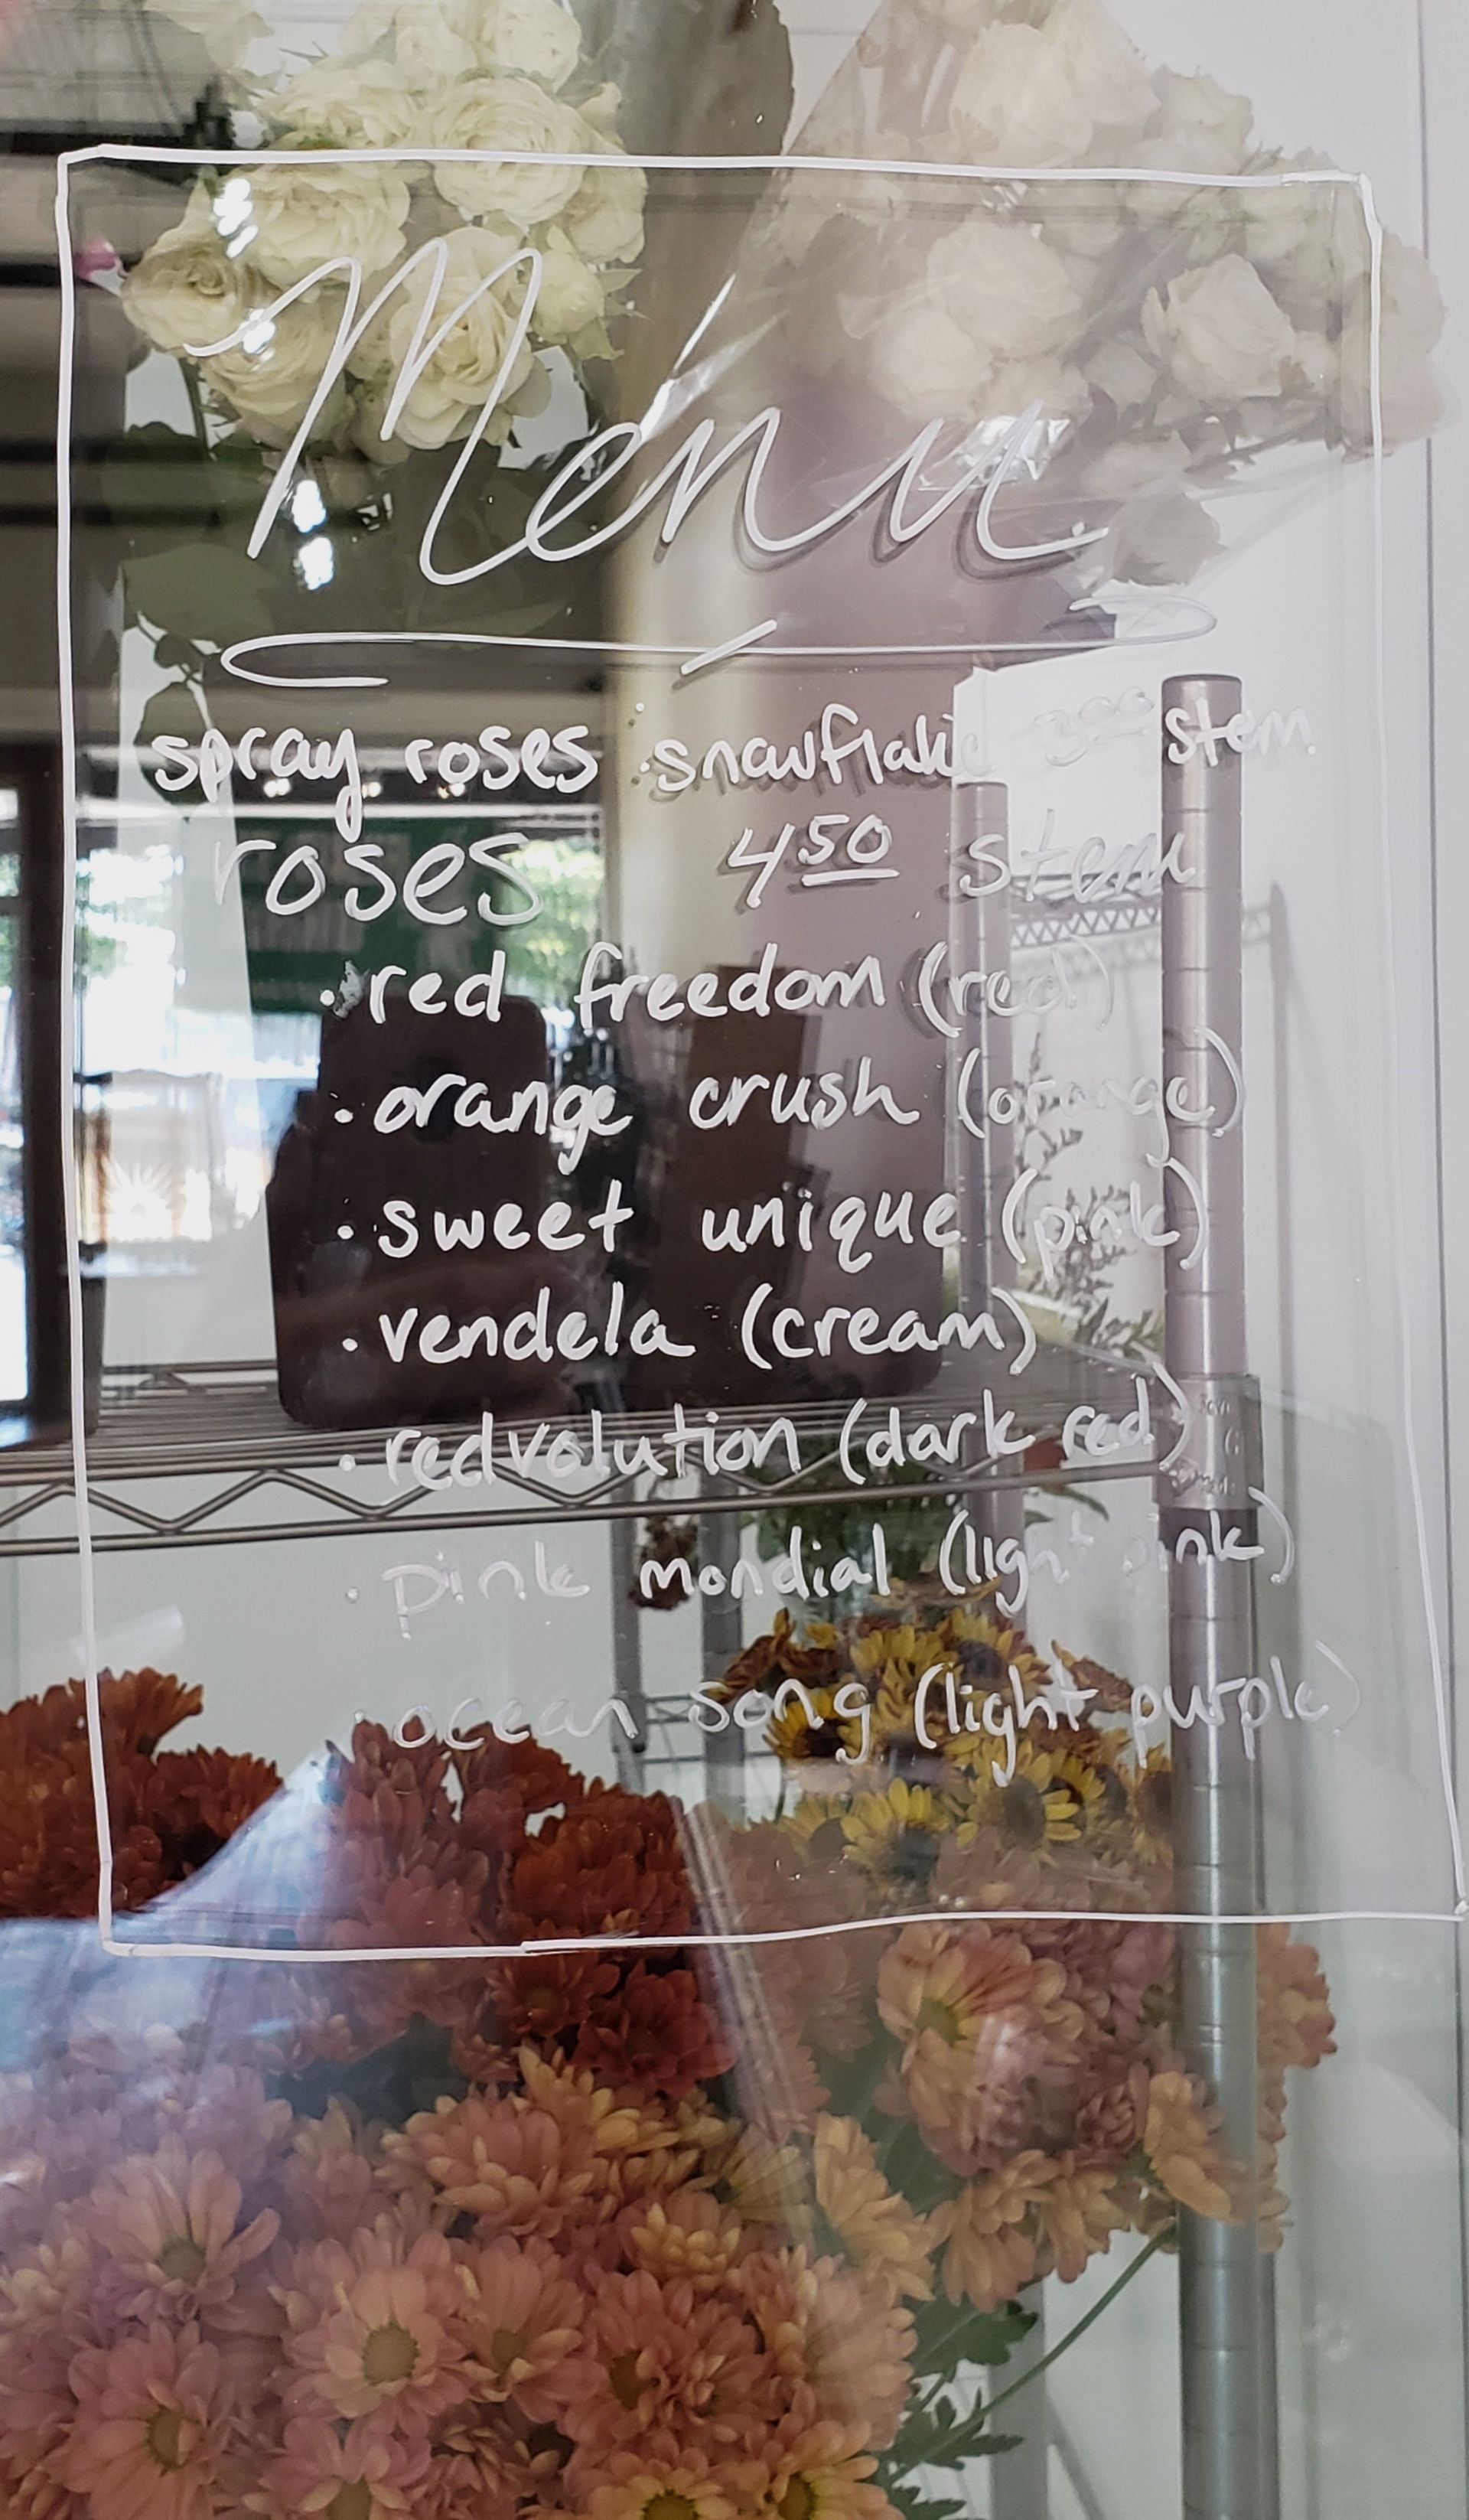 Menu
spray roses : snowflake 3.00 stem
roses 4.50 stem
· red freedom (red)
· orange crush (orange)
· sweet unique (pink)
· vendela (cream)
· redvolution (dark red)
· pink mondial (light pink)
· ocean song (light purple)